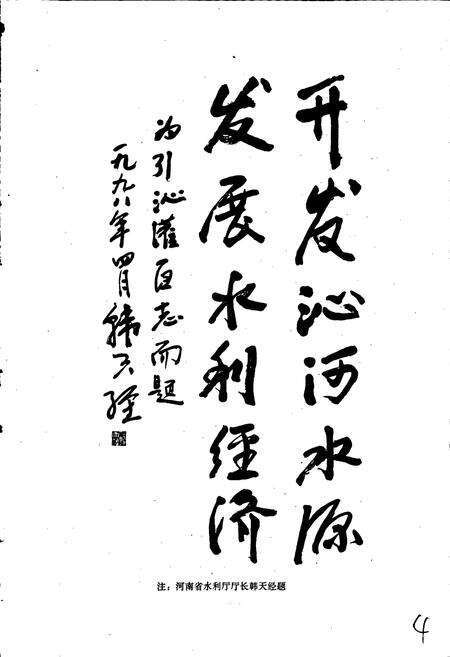 开发沁河水源
发展水利经济
为引沁灌区志而题
一九九八年四月韩天经
注：河南省水利厅厅长韩天经题
4